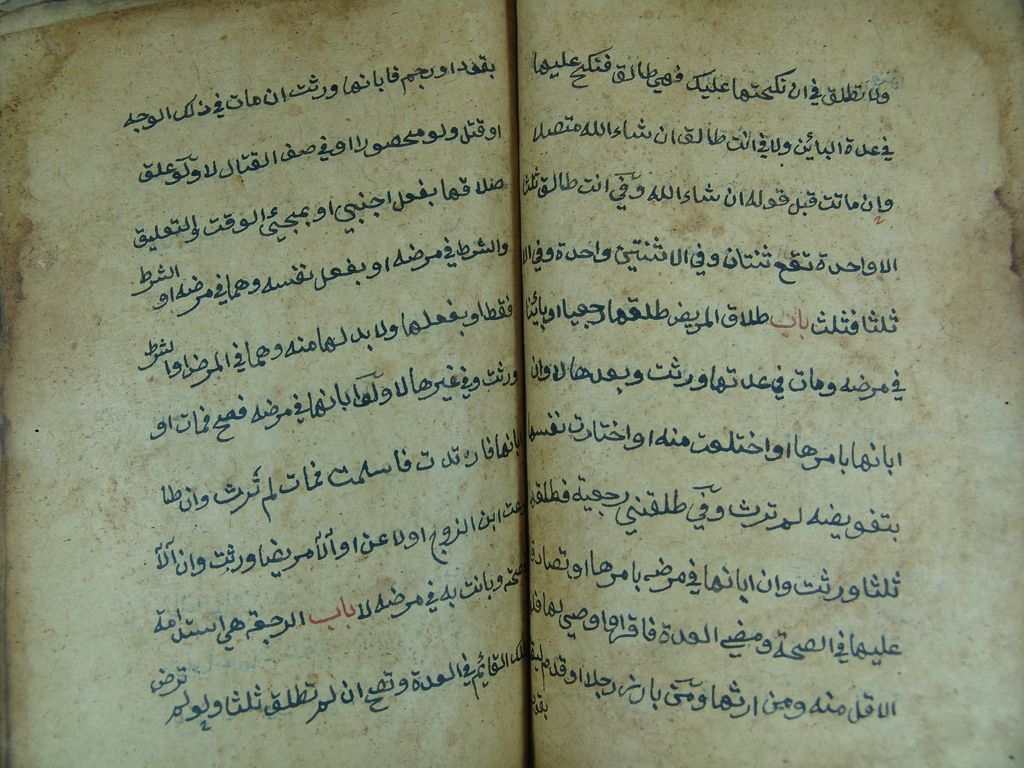 ولا تطلق في ان نكحتها عليك فهي طالق فنكح عليها
في عدة البائن ولا في انت طالق ان شاء الله متصلا
وان ماتت قبل قوله ان شاء الله وفي انت طالق ثلثا
الا واحدة تقع ثنتان وفي الا ثنتين واحدة وفي الا
ثلثا فثلث باب طلاق المريض طلقها رجعيا او بائنا
في مرضه ومات في عدتها ورثت وبعدها لا وان
ابانها بامرها او اختلعت منه او اختارت نفسها
بتفويضه لم ترث وفي طلقني رجعية فطلقها
ثلثا ورثت وان ابانها في مرضه بامرها او تصادقا
عليها في الصحة ومضي العدة فاقر او اوصي لها فلها
الاقل منه ومن ارثها ومن بارز رجلا او قدم ليقتل
بقود
بقود او رجم فابانها ورثت ان مات في ذلك الوجه
او قتل ولو محصورا او في صف القتال لا ولو علق
طلاقها بفعل اجنبي او بمجيئ الوقت والتعليق
والشرط في مرضه او بفعل نفسه وهما في مرضه او الشرط
فقط او بفعلها ولا بد لها منه وهما في المرض او الشرط
ورثت وفي غيرها لا ولو ابانها في مرضه فصح فمات او
ابانها فارتدت فاسلمت فمات لم ترث وان طا
وعت ابن الزوج او لاعن او آلا مريضا ورثت وان آلا
صحته وبانت به في مرضه لا باب الرجعة هي استدامة
الملك القائم في العدة وتصح ان لم تطلق ثلثا ولو لم ترض